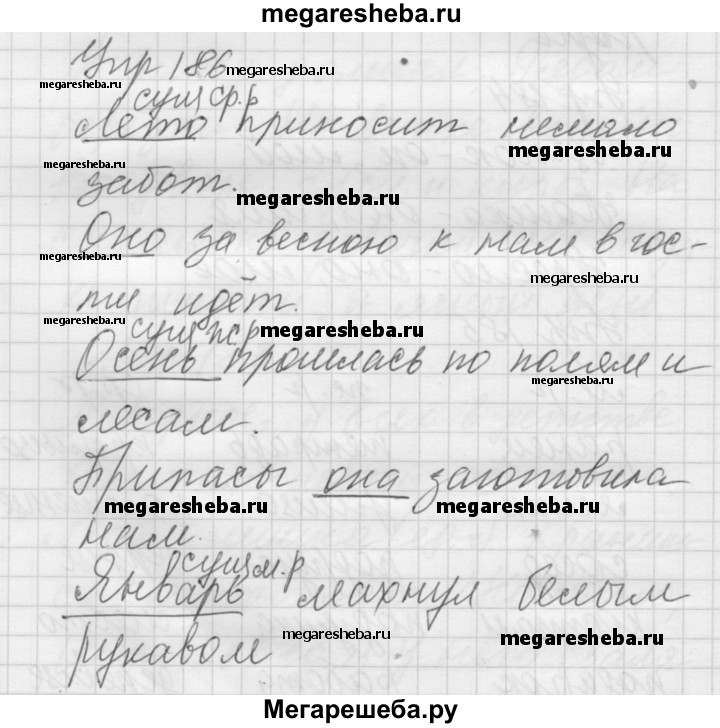 megaresheba.ru
Упр 186 megaresheba.ru
megaresheba.ru сущ ср.р
Лето приносит немало
megaresheba.ru
megaresheba.ru
забот. megaresheba.ru
Оно за весною к нам в гос-
megaresheba.ru
megaresheba.ru
ти идёт.
megaresheba.ru
сущ ж.р megaresheba.ru
Осень прошлась по полям и
megaresheba.ru
лесам.
Припасы она заготовила
megaresheba.ru megaresheba.ru
нам.
сущ м.р
Январь махнул белым
megaresheba.ru megaresheba.ru
рукавом
Мегарешеба.ру